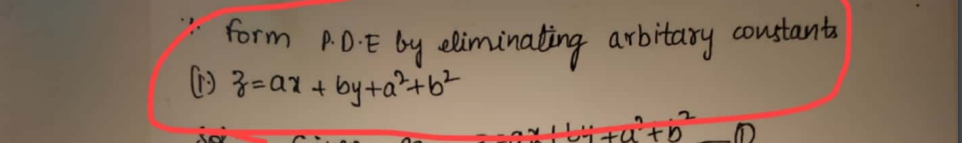 form P.D.E by eliminating arbitary constants
(i) z=ax + by+a²+b²
=ax+by+a²+b² —①